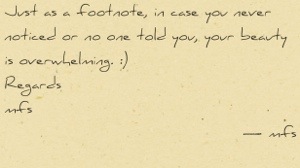 Just as a footnote, in case you never
noticed or no one told you, your beauty
is overwhelming. :)
Regards
mfs
— mfs